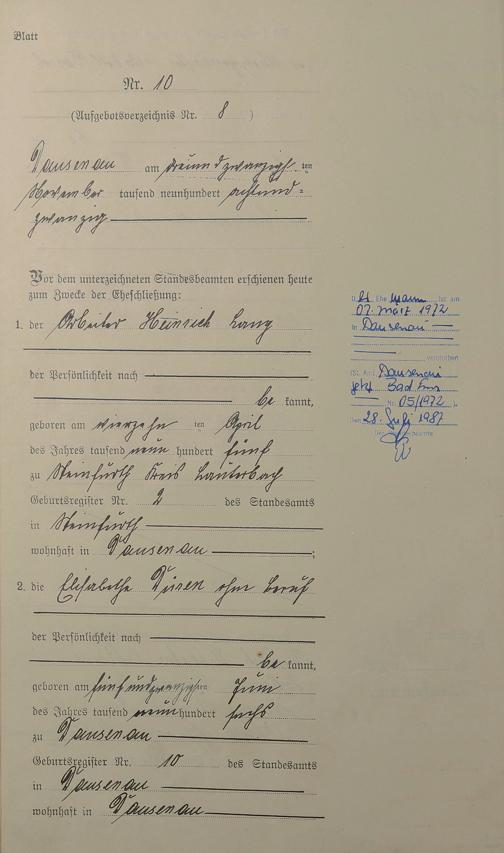 Blatt
Nr. 10
(Aufgebotsverzeichnis Nr. 8 )
Dausenau am dreiundzwanzigsten
November tausend neunhundert achtund=
zwanzig
Vor dem unterzeichneten Standesbeamten erschienen heute
zum Zwecke der Eheschließung:
1. der Arbeiter Heinrich Lang
der Persönlichkeit nach
be kannt,
geboren am vierzehn ten April
des Jahres tausend neun hundert fünf
zu Steinfurth Kreis Lauterbach
Geburtsregister Nr. 2 des Standesamts
in Steinfurth
wohnhaft in Dausenau ;
2. die Elisabetha ohne Beruf
der Persönlichkeit nach
be kannt,
geboren am fünfundzwanzigsten Juni
des Jahres tausend neun hundert sechs
zu Dausenau
Geburtsregister Nr. 10 des Standesamts
in Dausenau
wohnhaft in Dausenau
Ehemann ist am
07. März 1972
in Dausenau
verstorben
(St. Amt Dausenau
jetzt Bad Ems
Nr. 05/1972 ).
Den 28. Juli 1987